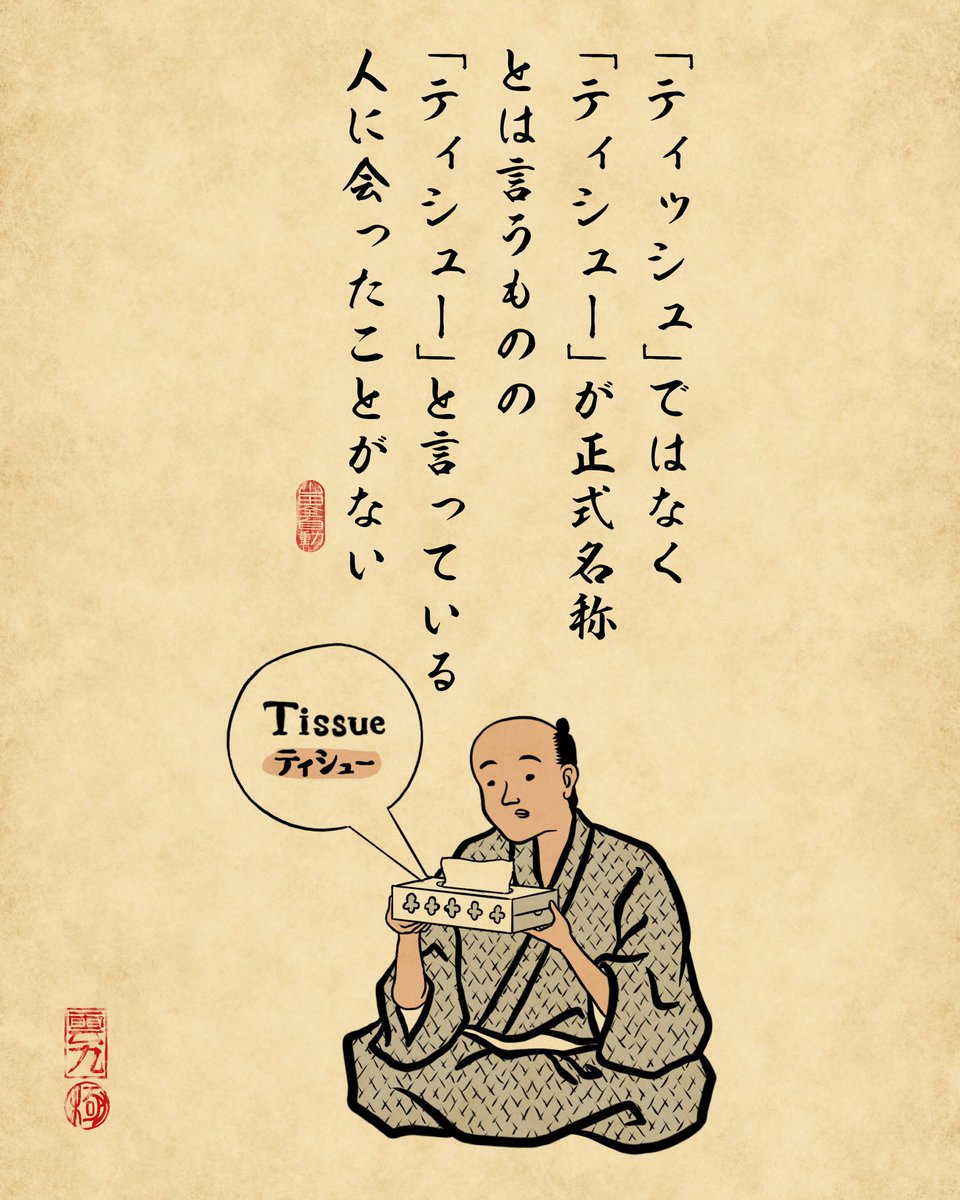 「ティッシュ」ではなく
「ティシュー」が正式名称
とは言うものの
「ティシュー」と言っている
人に会ったことがない
Tissue
ティシュー